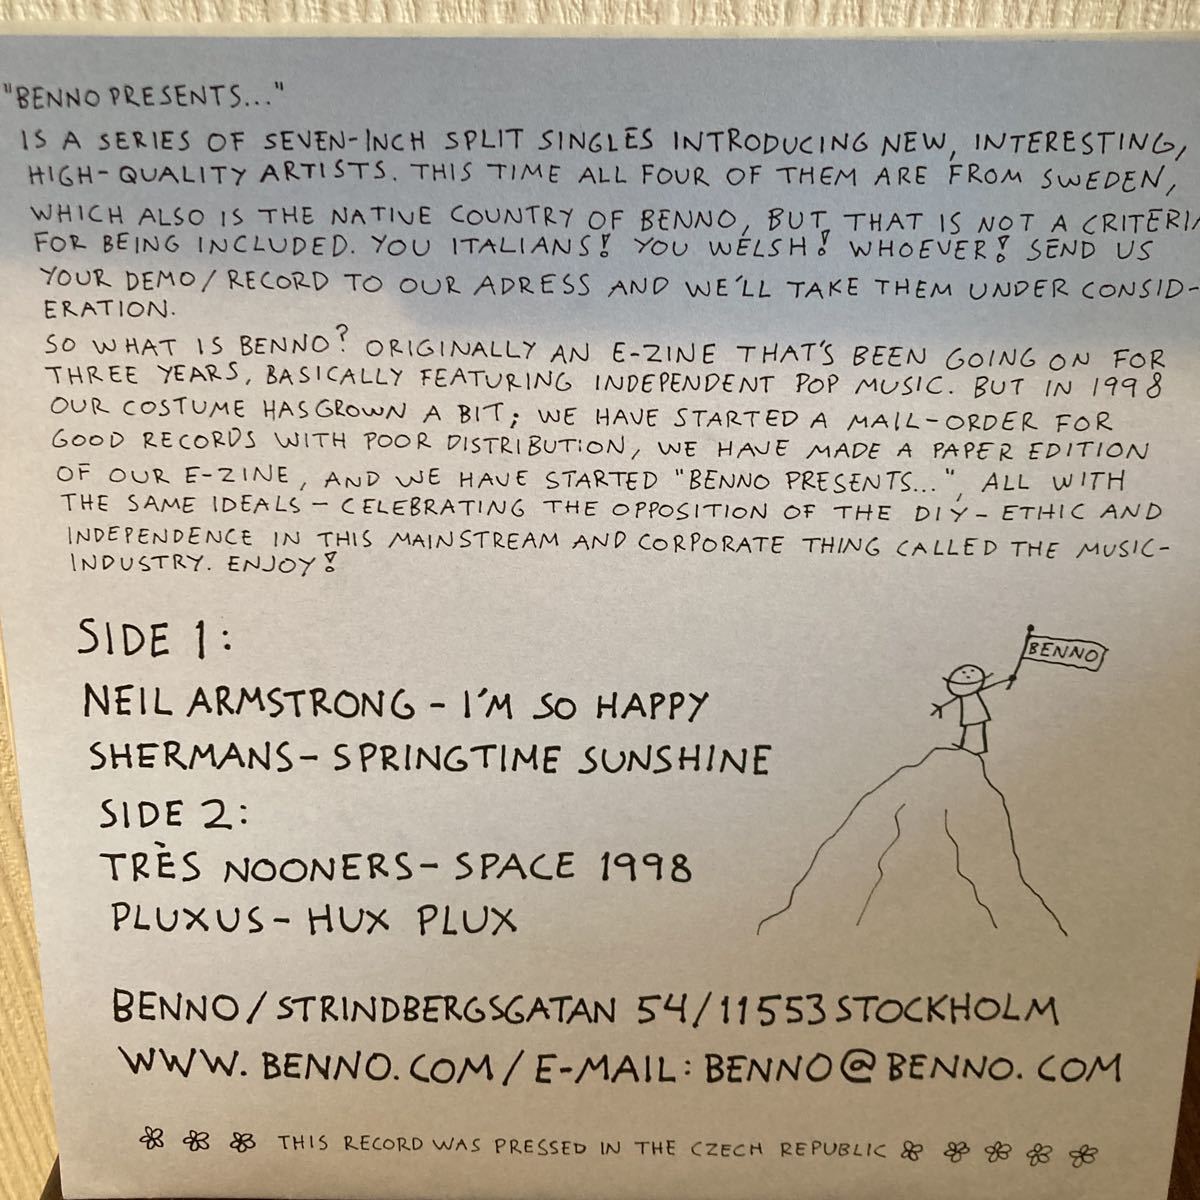 "BENNO PRESENTS..."
IS A SERIES OF SEVEN-INCH SPLIT SINGLES INTRODUCING NEW, INTERESTING,
HIGH-QUALITY ARTISTS. THIS TIME ALL FOUR OF THEM ARE FROM SWEDEN,
WHICH ALSO IS THE NATIVE COUNTRY OF BENNO, BUT THAT IS NOT A
FOR BEING INCLUDED. YOU ITALIANS! YOU WELSH! WHOEVER! SEND US
YOUR DEMO/RECORD TO OUR ADRESS AND WE'LL TAKE THEM UNDER CONSID-
ERATION.
SO WHAT IS BENNO? ORIGINALLY AN E-ZINE THAT'S BEEN GOING ON FOR
THREE YEARS, BASICALLY FEATURING INDEPENDENT POP MUSIC. BUT IN 1998
OUR COSTUME HAS GROWN A BIT; WE HAVE STARTED A MAIL-ORDER FOR
GOOD RECORDS WITH POOR DISTRIBUTION, WE HAVE MADE A PAPER EDITION
OF OUR E-ZINE, AND WE HAVE STARTED "BENNO PRESENTS...", ALL WITH
THE SAME IDEALS - CELEBRATING THE OPPOSITION OF THE DIY-ETHIC AND
INDEPENDENCE IN THIS MAINSTREAM AND CORPORATE THING CALLED THE MUSIC-
INDUSTRY. ENJOY!
SIDE 1:
NEIL ARMSTRONG - I'M SO HAPPY
SHERMANS - SPRINGTIME SUNSHINE
SIDE 2:
TRÈS NOONERS - SPACE 1998
PLUXUS - HUX PLUX
BENNO
BENNO/STRINDBERGSGATAN 54/11553 STOCKHOLM
WWW.BENNO.COM/E-MAIL: BENNO@BENNO.COM
THIS RECORD WAS PRESSED IN THE CZECH REPUBLIC